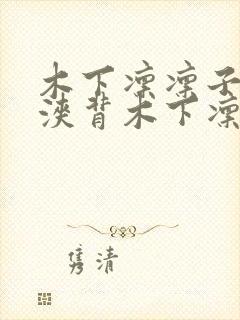 木下凛凛子
浃背木下凛
隽清